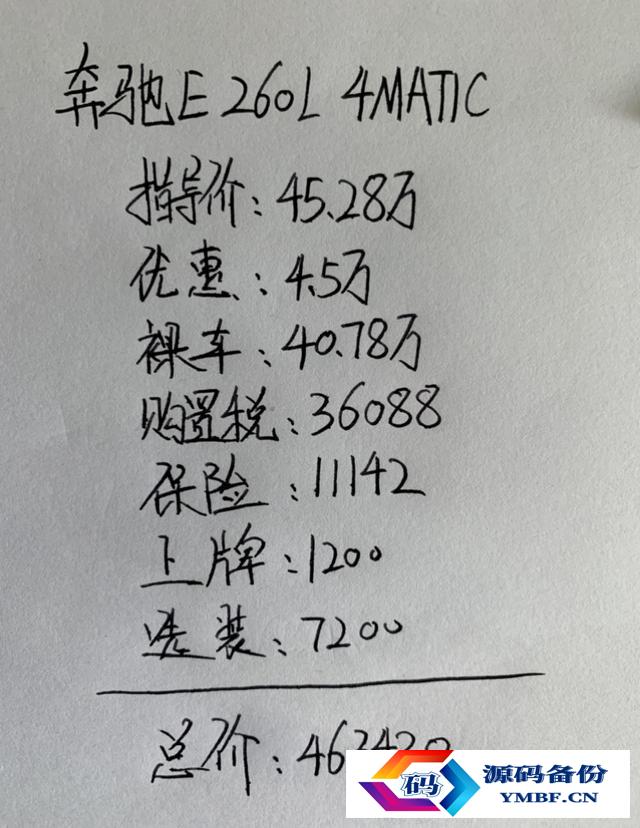 奔驰E 260L 4MATIC
指导价:45.28万
优惠:4.5万
裸车:40.78万
购置税:36088
保险:11142
上牌:1200
选装:7200
总价:463430
码 源码备份
YMBF.CN